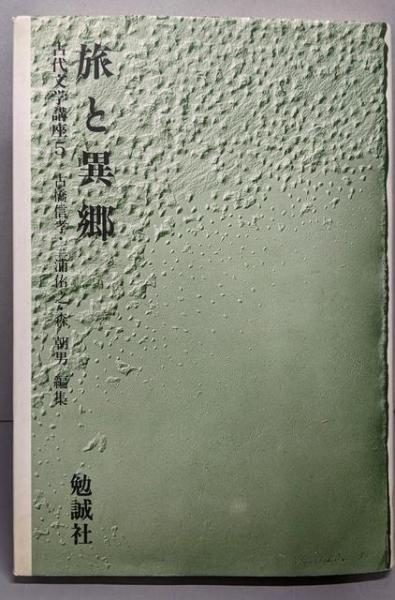 旅と異郷
古代文学講座5 古橋信孝・三浦佑之・森 朝男 編集
勉誠社